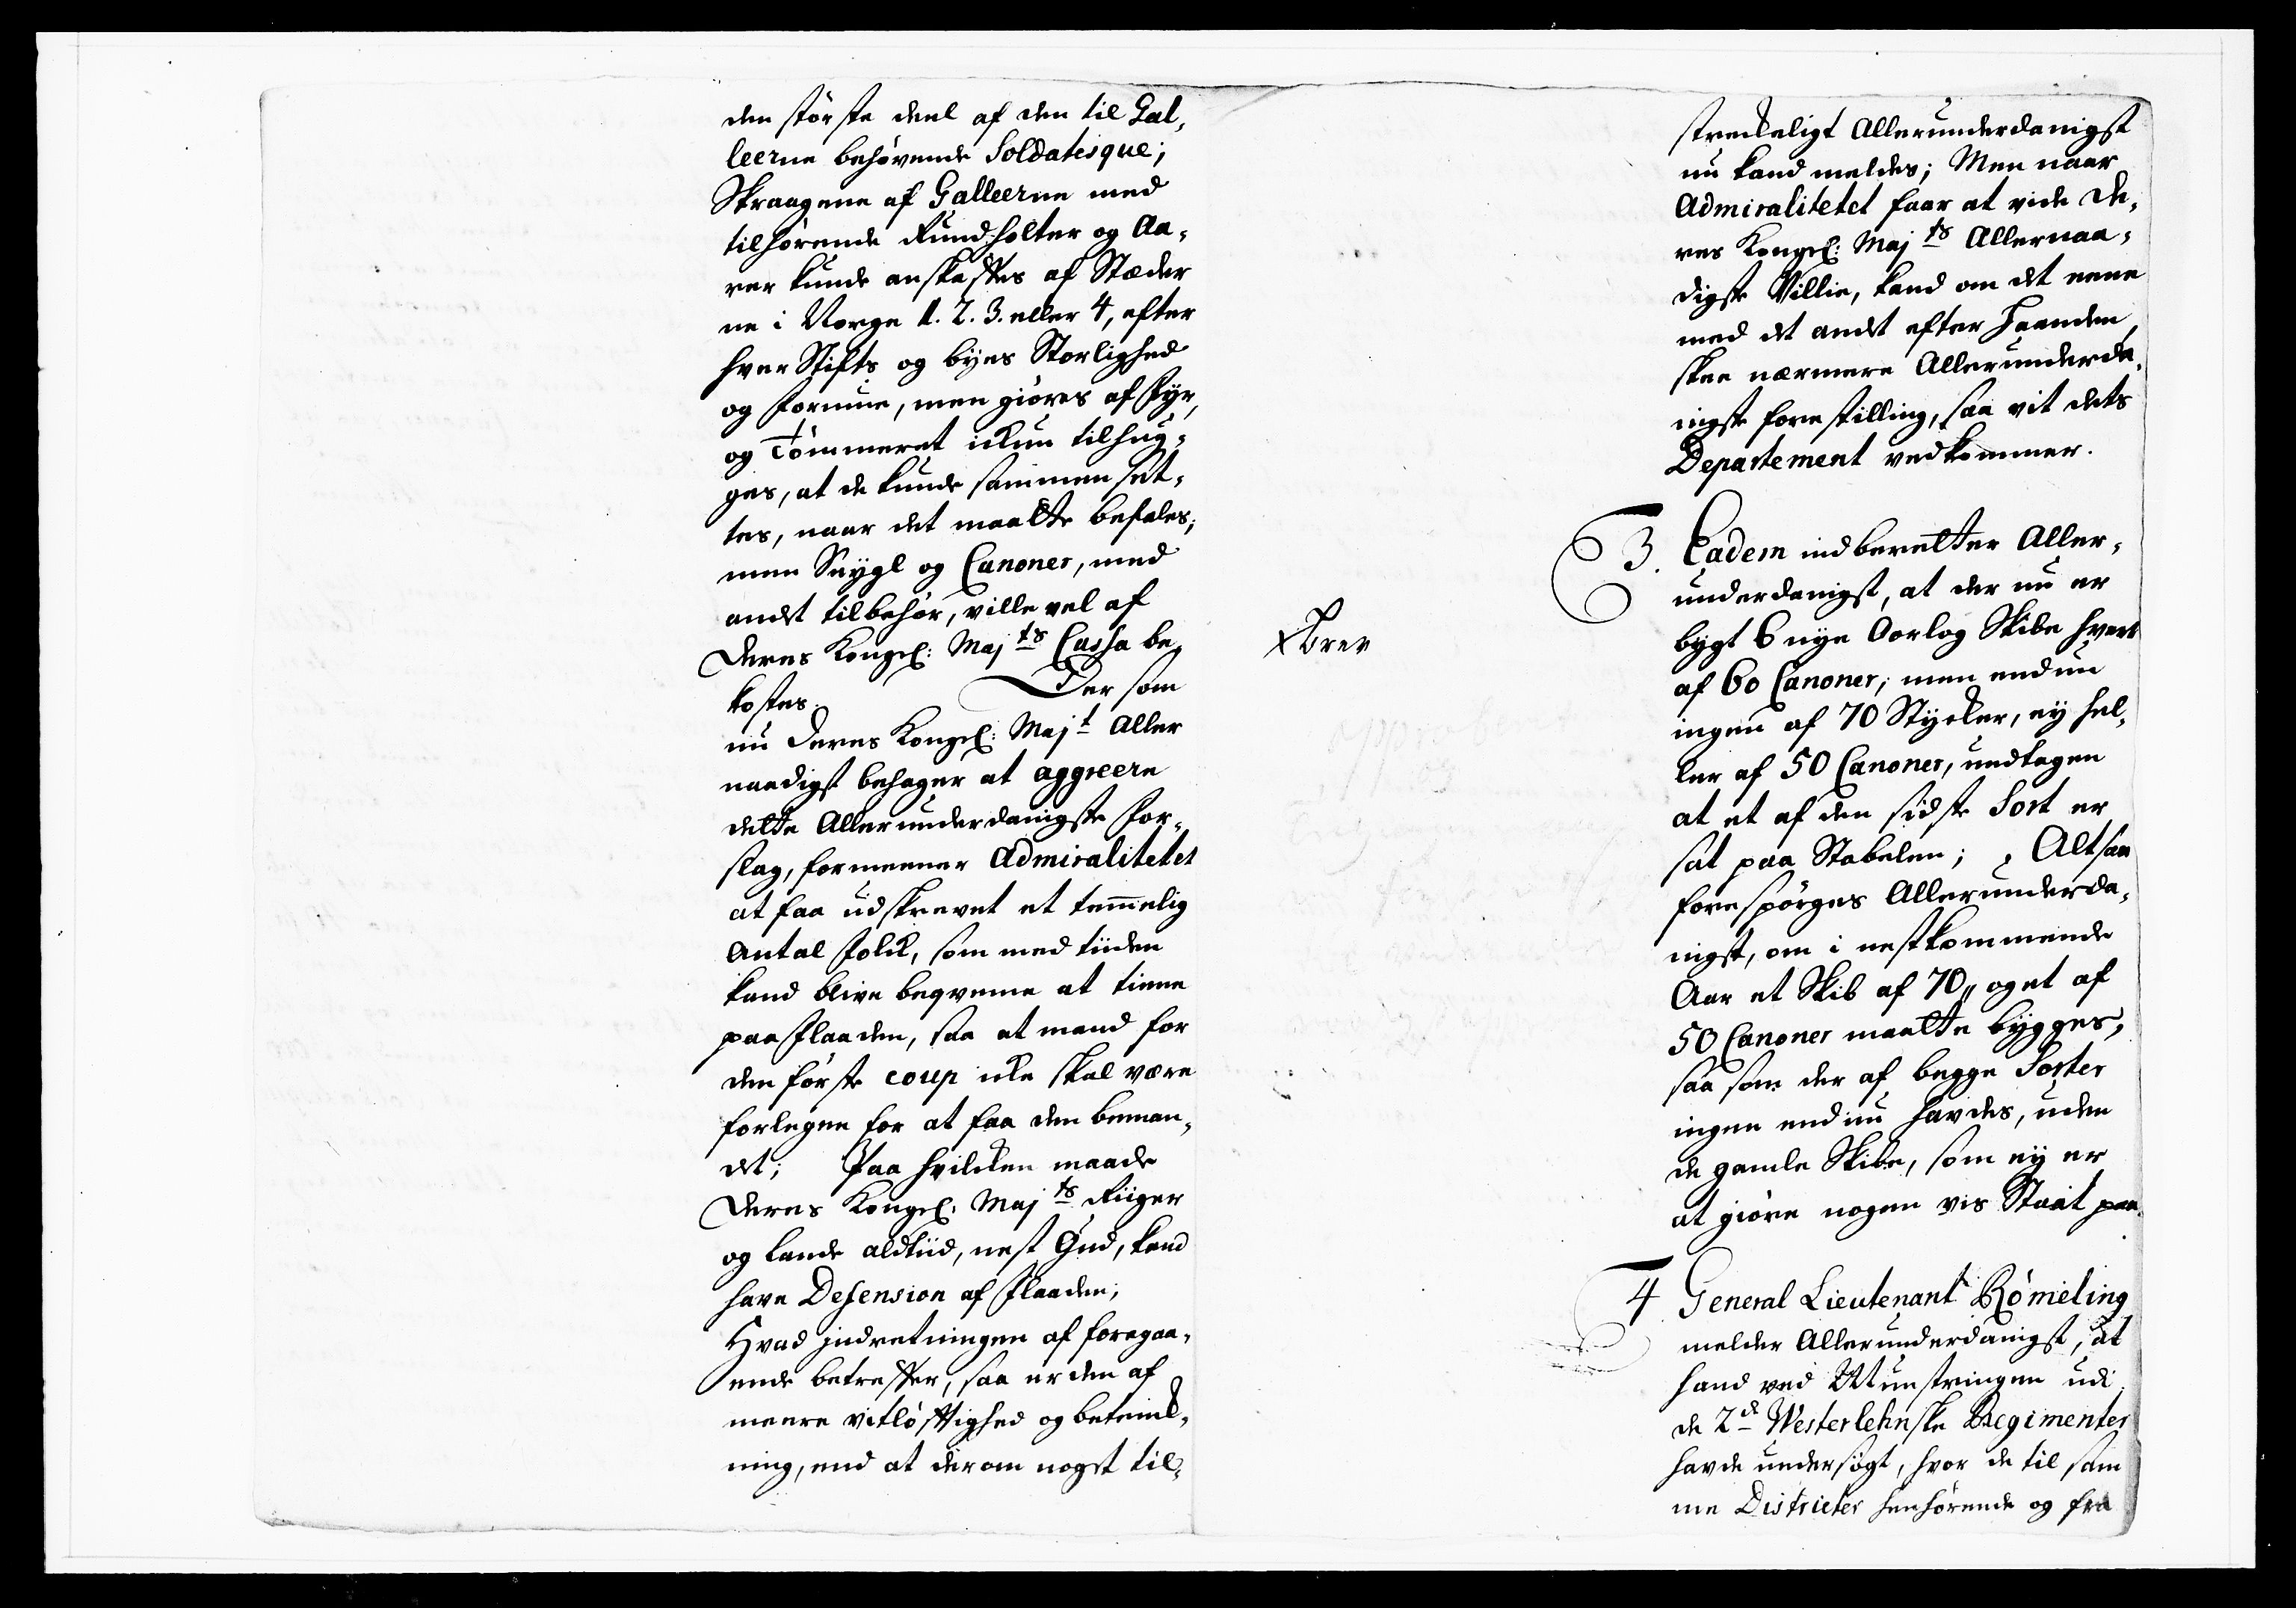 den største deel af den til Gal-
leerne behøvende Soldatesque;
Skraagene af Galleerne med
tilhørende Rundholter og Aa-
rer kunde anskaffes af Stæder
ne i Norge 1. 2. 3. eller 4, efter
hver Stifts og byes Storlighed
og formue, men giøres af fyr,
og Tømmeret ickun tilhug-
ges, at de kunde sammen sæt-
tes, naar det maatte befales;
men Seygl og Canoner, med
andet tilbehør, ville vel af
Deres Kongel: Majts Cassa be-
kostes. Der som
nu Deres Kongel: Majt Aller
naadigst behager at aggreere
dette Allerunderdanigste for-
slag, formeener Admiralitetet
at faa udskrevet et temmelig
Antal folck, som med tiiden
kand blive beqveme at tiene
paa flaaden, saa at mand for
den første coup icke skal være
forlegen for at faa den beman-
det; Paa hvilcken maade
Deres Kongel: Majts Riiger
og lande aldtiid, nest Gud, kand
have Defension af flaaden;
Hvad jndretningen af foregaa-
ende betreffer, saa er den af
meere vitløftighed og beteenck-
ning, end at derom noget til-
streckeligt Allerunderdanigst
nu kand meldes; Men naar
Admiralitetet faar at vide De-
res Kongel: Majts Allernaa-
digste Villie, kand om det eene
med det andet efter haanden
skee nærmere Allerunderda-
nigste forestilling, saa vit dets
Departement vedkommer.
3. Eadem indberetter Aller-
underdanigst, at der nu er
bygt 6 nye Orlog Skibe hvert
af 60 Canoner; men endnu
ingen af 70 Stycker, ey hel-
ler af 50 Canoner, undtagen
at et af den sidste Sort er
sat paa Stabelen; Altsaa
forespørges Allerunderda-
nigst, om i nestkommende
Aar et Skib af 70,, og et af
50 Canoner maatte bygges,
saa som der af begge Sorter
ingen endnu havdes, uden
de gamle Skibe, som ey er
at giøre nogen vis Staat paa.
4 General Lieutenant Römeling
melder Allerunderdanigst, at
hand ved Munstringen udi
de 2de Westerlehnske Regimenter
havde undersøgt, hvor de til sam
me Districter henhørende og fra